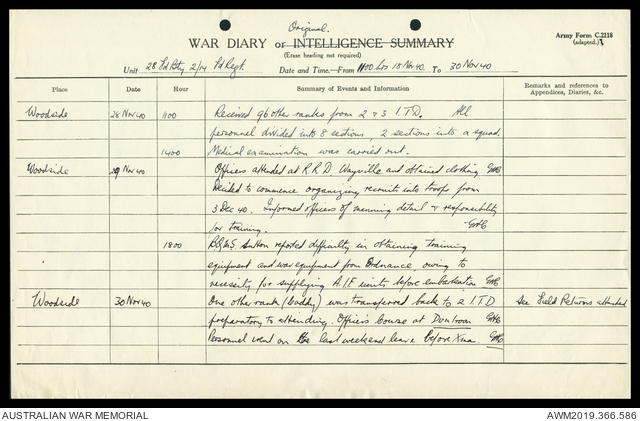 Original.
WAR DIARY or INTELLIGENCE SUMMARY
Army Form C.2118
(adapted.)
(Erase heading not required)
Unit 28 Fd Bty 2/14 Fd Regt. Date and Time—From 1100 hrs 18 Nov 40 To 30 Nov 40
Place Date Hour Summary of Events and Information Remarks and references to
Appendices, Diaries, &c.
Woodside 28 Nov 40 1100 Received 96 other ranks from 2 & 3 I.T.D. All
personnel divided into 8 sections, 2 sections into a squad.
1400 Medical examination was carried out.
Woodside 29 Nov 40 Officers attended at R.R.D. Wayville and obtained clothing
Decided to commence organizing recruits into troops from
3 Dec 40. Informed officers of manning detail & responsibility
for training.
1800 BQMS Sutton reported difficulty in obtaining training
equipment and war equipment from Ordnance, owing to
necessity for supplying A.I.F units before embarkation
Woodside 30 Nov 40 One other rank (Boddy) was transferred back to 2 I.T.D See Field Returns attached
preparatory to attending Officers Course at Duntroon
Personnel went on the last weekend leave before Xmas.
AUSTRALIAN WAR MEMORIAL AWM2019.366.586